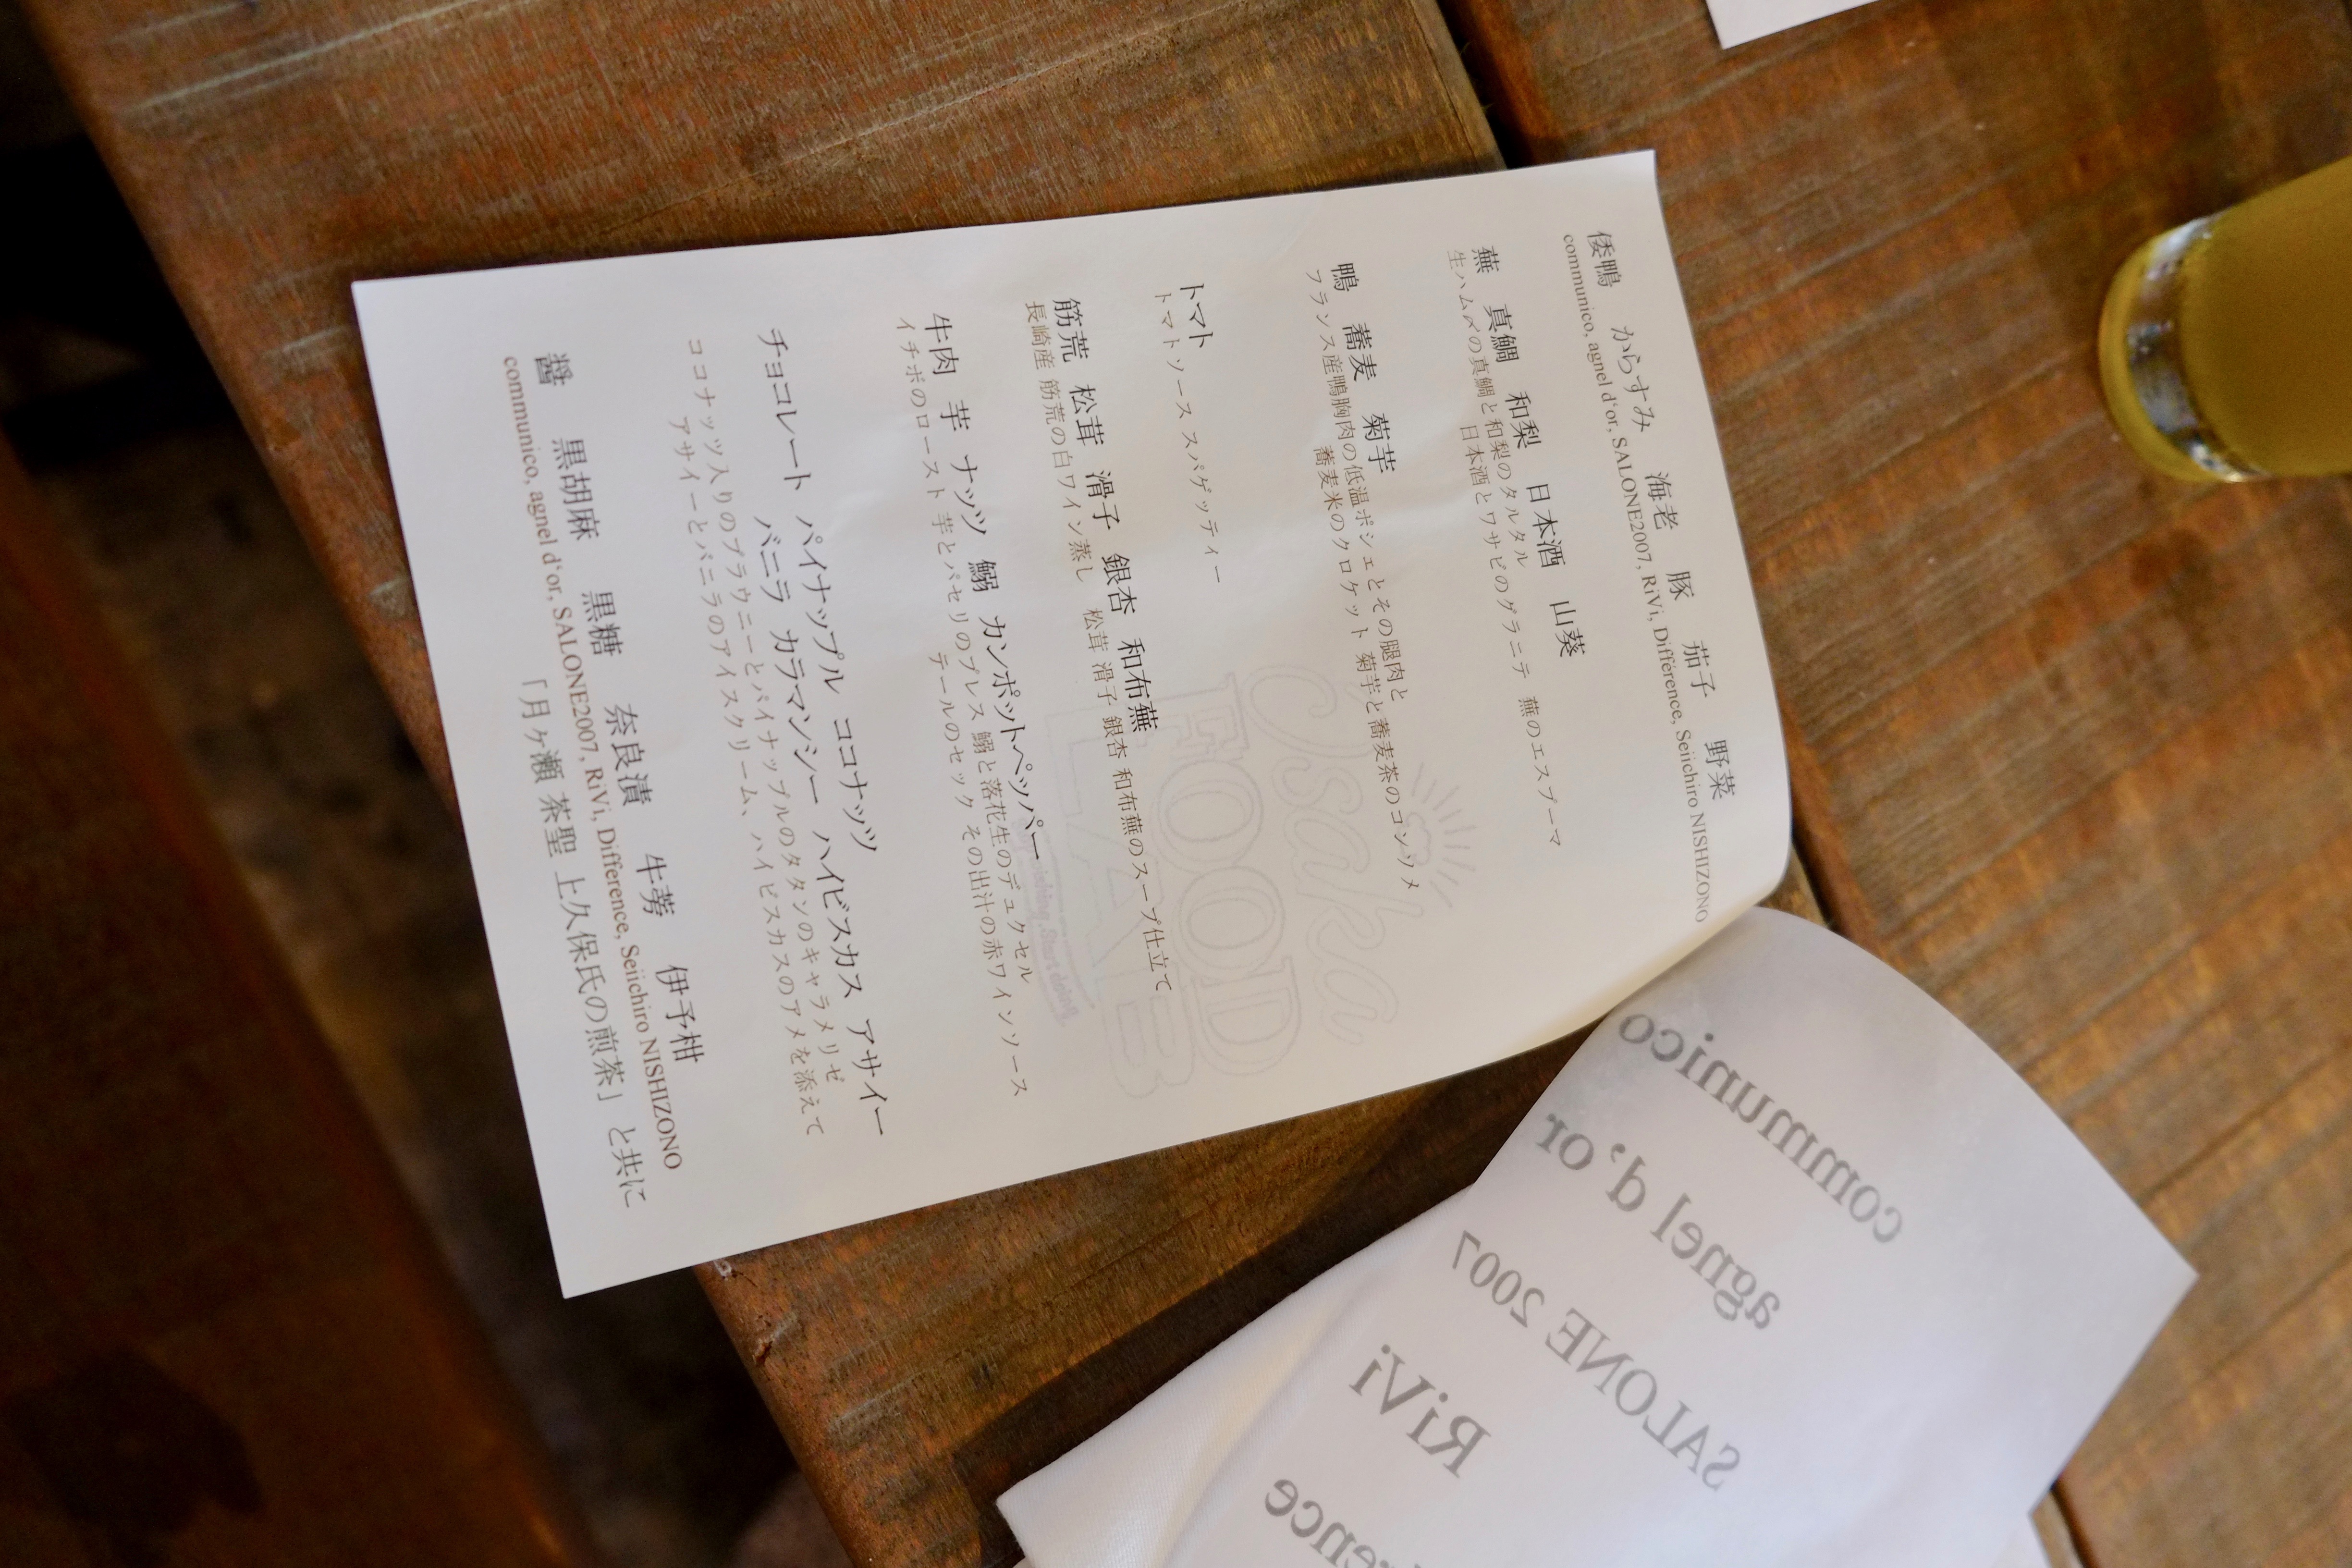 倭鴨 からすみ 海老 豚 茄子 野菜
communico, agnel d'or, SALONE2007, RiVi, Difference, Seiichiro NISHIZONO
蕪 真鯛 和梨 日本酒 山葵
生ハム〆の真鯛と和梨のタルタル
日本酒とワサビのグラニテ 蕪のエスプーマ
鴨 蕎麦 菊芋
フランス産鴨胸肉の低温ポシェとその腿肉と
蕎麦米のクロケット 菊芋と蕎麦茶のコンソメ
トマト
トマトソース スパゲッティー
筋荒 松茸 滑子 銀杏 和布蕪
長崎産 筋荒の白ワイン蒸し 松茸 滑子 銀杏 和布蕪のスープ仕立て
牛肉 芋 ナッツ 鰯 カンポットペッパー
イチボのロースト 芋とパセリのプレス 鰯と落花生のデュクセル
テールのセック その出汁の赤ワインソース
チョコレート パイナップル ココナッツ
バニラ カラマンシー ハイビスカス アサイー
ココナッツ入りのブラウニーとパイナップルのタタンのキャラメリゼ
アサイーとバニラのアイスクリーム、ハイビスカスのアメを添えて
醤 黒胡麻 黒糖 奈良漬 牛蒡 伊予柑
communico, agnel d'or, SALONE2007, RiVi, Difference, Seiichiro NISHIZONO
「月ヶ瀬 茶聖 上久保氏の煎茶」と共に
Osaka
FOOD
LAB
communico
agnel d' or
SALONE 2007
RiVi